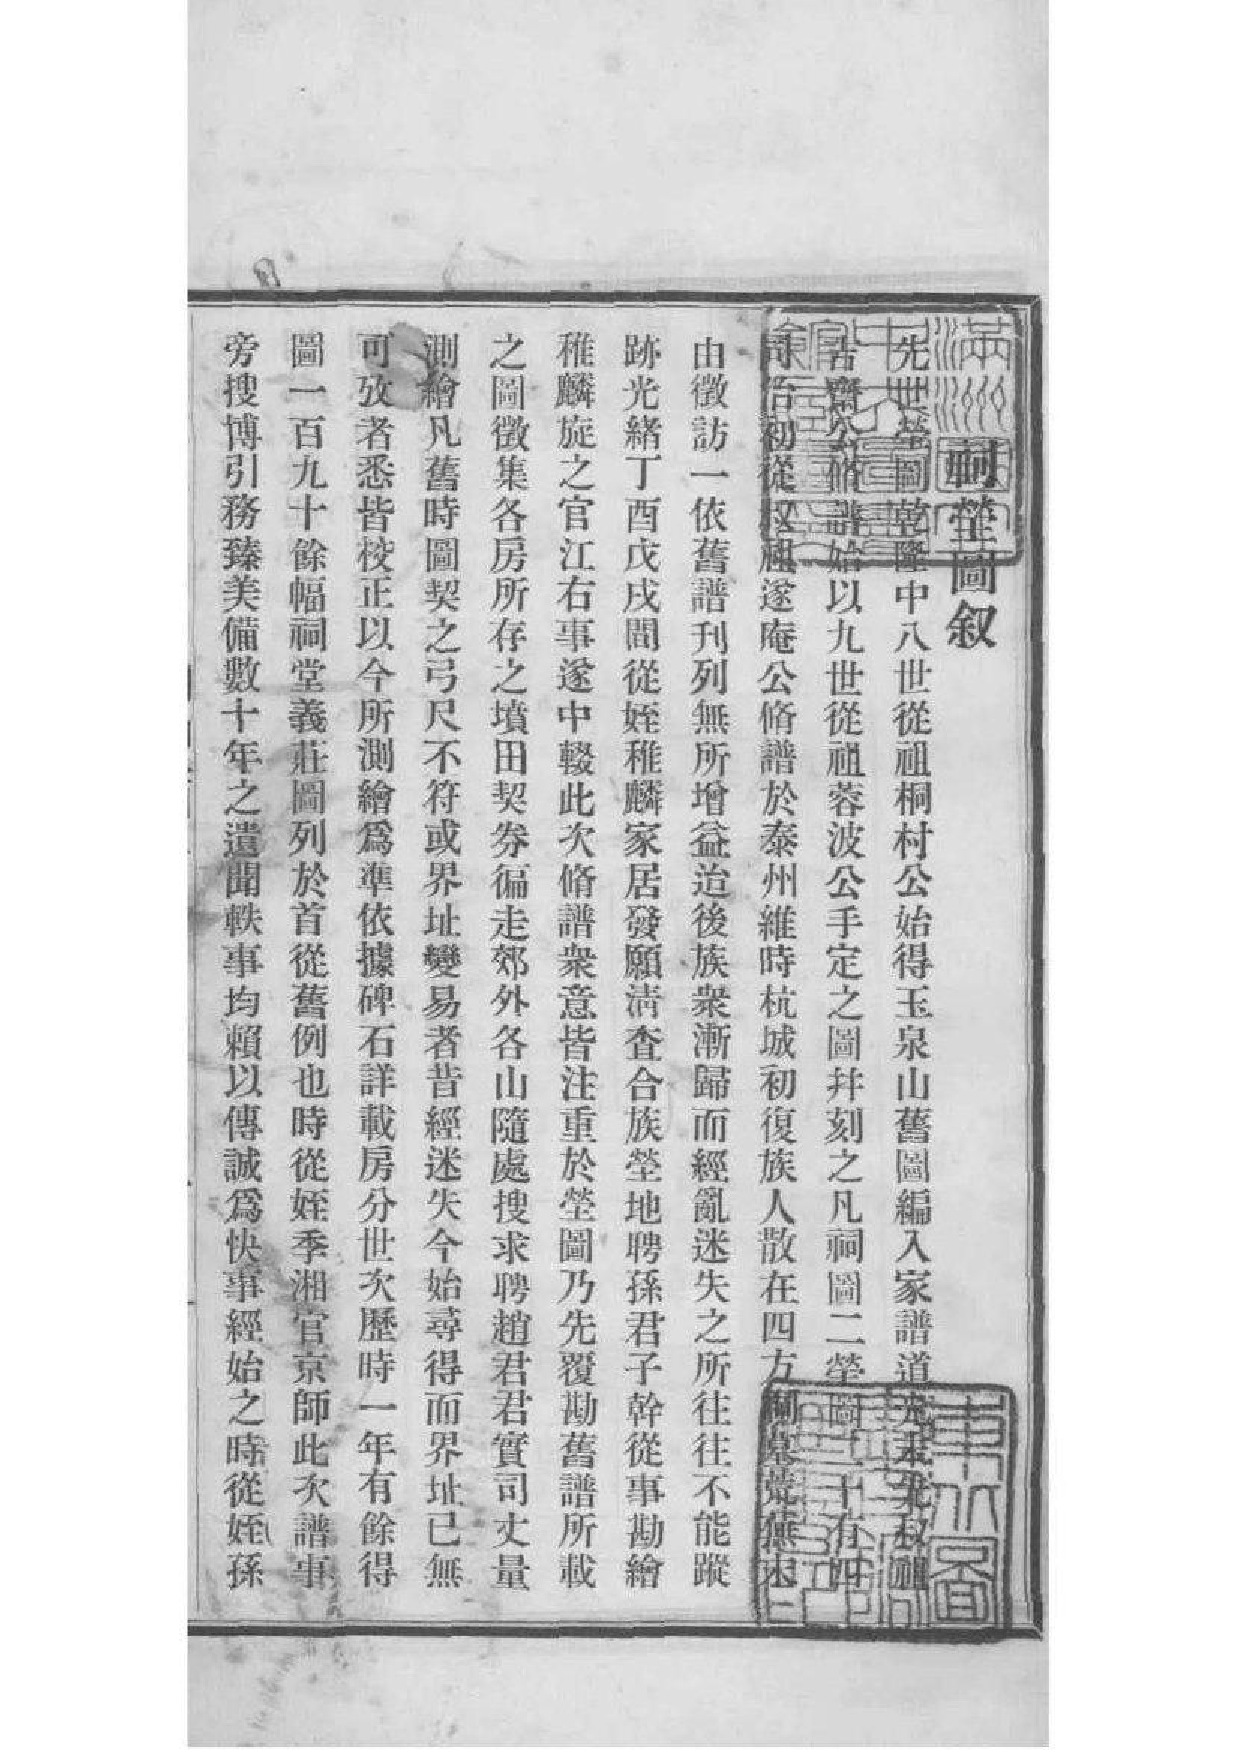 祠塋圖叙
先世塋圖乾隆中八世從祖桐村公始得玉泉山舊圖編入家譜道光叔祖
古齋公脩譜始以九世從祖蓉波公手定之圖幷刻之凡祠圖二塋圖二十有四
同治初從叔祖遂庵公脩譜於泰州維時杭城初復族人散在四方墓荒蕪末
由徵訪一依舊譜刊列無所增益迨後族衆漸歸而經亂迷失之所往往不能蹤
跡光緖丁酉戊戌間從姪稚麟家居發願清查合族塋地聘孫君子幹從事勘繪
稚麟旋之官江右事遂中輟此次脩譜衆意皆注重於塋圖乃先覆勘舊譜所載
之圖徵集各房所存之墳田契券徧走郊外各山隨處搜求聘趙君君實司丈量
測繪凡舊時圖契之弓尺不符或界址變易者昔經迷失今始尋得而界址已無
可攷者悉皆校正以今所測繪爲準依據碑石詳載房分世次歷時一年有餘得
圖一百九十餘幅祠堂義莊圖列於首從舊例也時從姪季湘官京師此次譜事
旁搜博引務臻美備數十年之遺聞軼事均賴以傳誠爲快事經始之時從姪孫